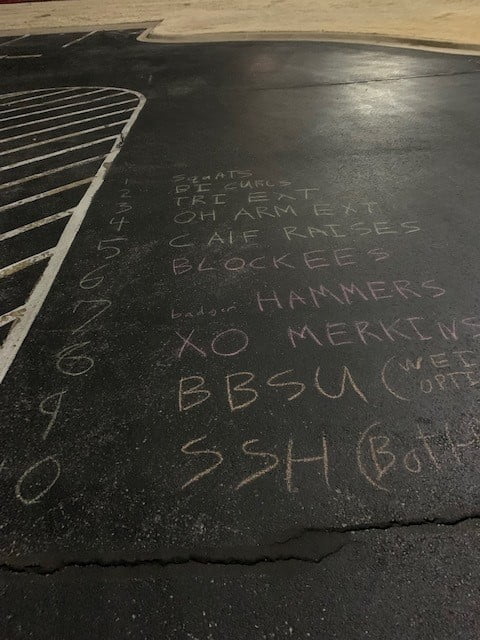 1 SQUATS
2 BI CURLS
3 TRI EXT
4 OH ARM EXT
5 CALF RAISES
6 BLOCKEES
7 HAMMERS
8 XO MERKINS
9 BBSU (WEI
OPTI
10 SSH (Both